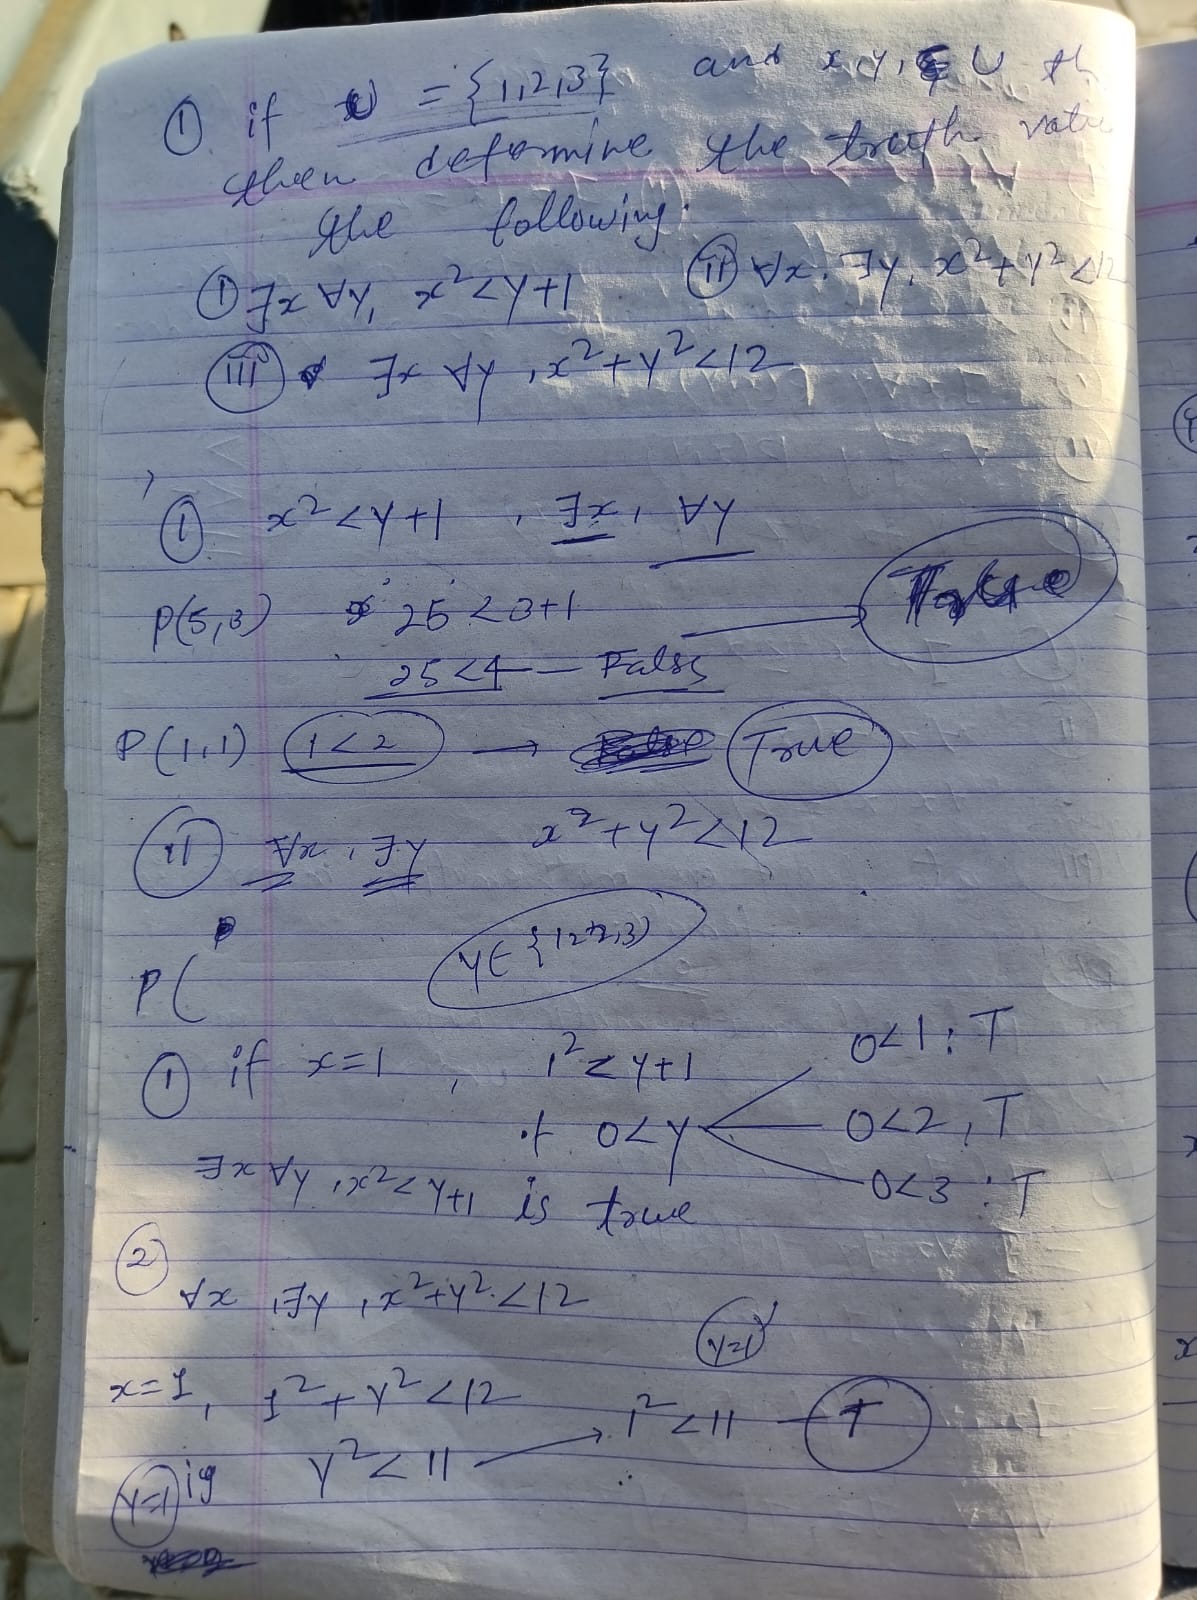 ① if U = {1,2,3} and x, y, ∈ U th
then determine the truth value
the following.
① ∃x ∀y, x² < y+1 ⓘⓘ ∀x, ∃y, x²+y² <12
ⓘⓘⓘ ∃x ∀y , x²+y² <12
① x² < y+1 , ∃x, ∀y
P(5,3) 25 < 3+1
25 < 4 — False
P(1,1) 1<2 → True
ⓘⓘ ∀x , ∃y x²+y² <12
P( y ∈ {1,2,3)
① if x=1 , 1² < y+1 0<1 : T
0 < y 0<2 , T
∃x ∀y , x² < y+1 is true 0<3 : T
②
∀x , ∃y , x²+y² <12
y=1
x=1, 1²+y² <12 1² < 11 — T
y=1 y² < 11 → ∴